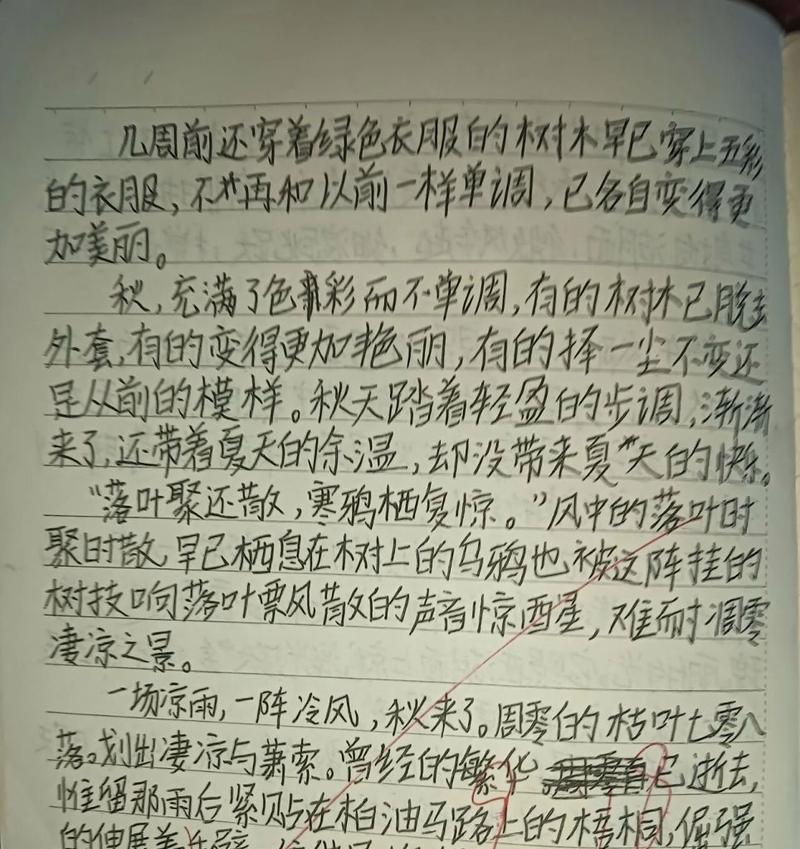 几周前还穿着绿色衣服的树木早已穿上五彩
的衣服，不再和以前一样单调，已各自变得更
加美丽。
秋，充满了色彩而不单调，有的树木已脱去
外套，有的变得更加艳丽，有的择一尘不变还
是从前的模样。秋天踏着轻盈的步调，渐渐
来了，还带着夏天的余温，却没带来夏天的快乐。
“落叶聚还散，寒鸦栖复惊。”风中的落叶时
聚时散，早已栖息在树上的乌鸦也被这阵挂的
树技响落叶飘散的声音惊醒，难耐凋零
凄凉之景。
一场凉雨，一阵冷风，秋来了。周零的枯叶七零八
落。划出凄凉与萧索。曾经的繁化已逝去，
惟留那雨后紧贴在柏油马路上的梧桐，倔强
的伸展着